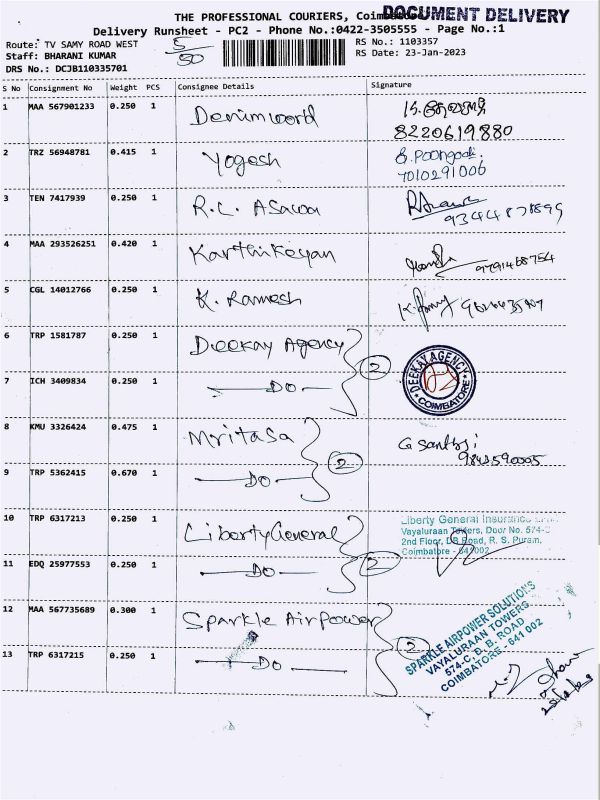 THE PROFESSIONAL COURIERS, Coimbatore
DOCUMENT DELIVERY
Delivery Runsheet - PC2 - Phone No.:0422-3505555 - Page No.:1
Route: TV SAMY ROAD WEST
5/50
RS No.: 1103357
Staff: BHARANI KUMAR
RS Date: 23-Jan-2023
DRS No.: DCJB110335701
S No Consignment No Weight PCS Consignee Details Signature
1 MAA 567901233 0.250 1 Denimword
8220619880
2 TRZ 56948781 0.415 1 Yogesh S. Poongodi.
7010291006
3 TEN 7417939 0.250 1 R.C. Asawa
4 MAA 293526251 0.420 1 Karthikeyan
9791468754
5 CGL 14012766 0.250 1 K. Ramesh
6 TRP 1581787 0.250 1 Deekay Agency
2
DEEKAY AGENCY
COIMBATORE
7 ICH 3409834 0.250 1 DO
8 KMU 3326424 0.475 1 Mritasa
2
G Santhji
9 TRP 5362415 0.670 1 DO
10 TRP 6317213 0.250 1 Liberty General
Liberty General Insurance
Vayaluraan Towers, Door No. 574-C
2nd Floor, DB Road, R. S. Puram,
Coimbatore - 641002
11 EDQ 25977553 0.250 1 DO
2
12 MAA 567735689 0.300 1 Sparkle AirPower
2
SPARKLE AIRPOWER SOLUTIONS
VAYALURAAN TOWERS
574-C, D.B. ROAD
COIMBATORE - 641 002
13 TRP 6317215 0.250 1 DO